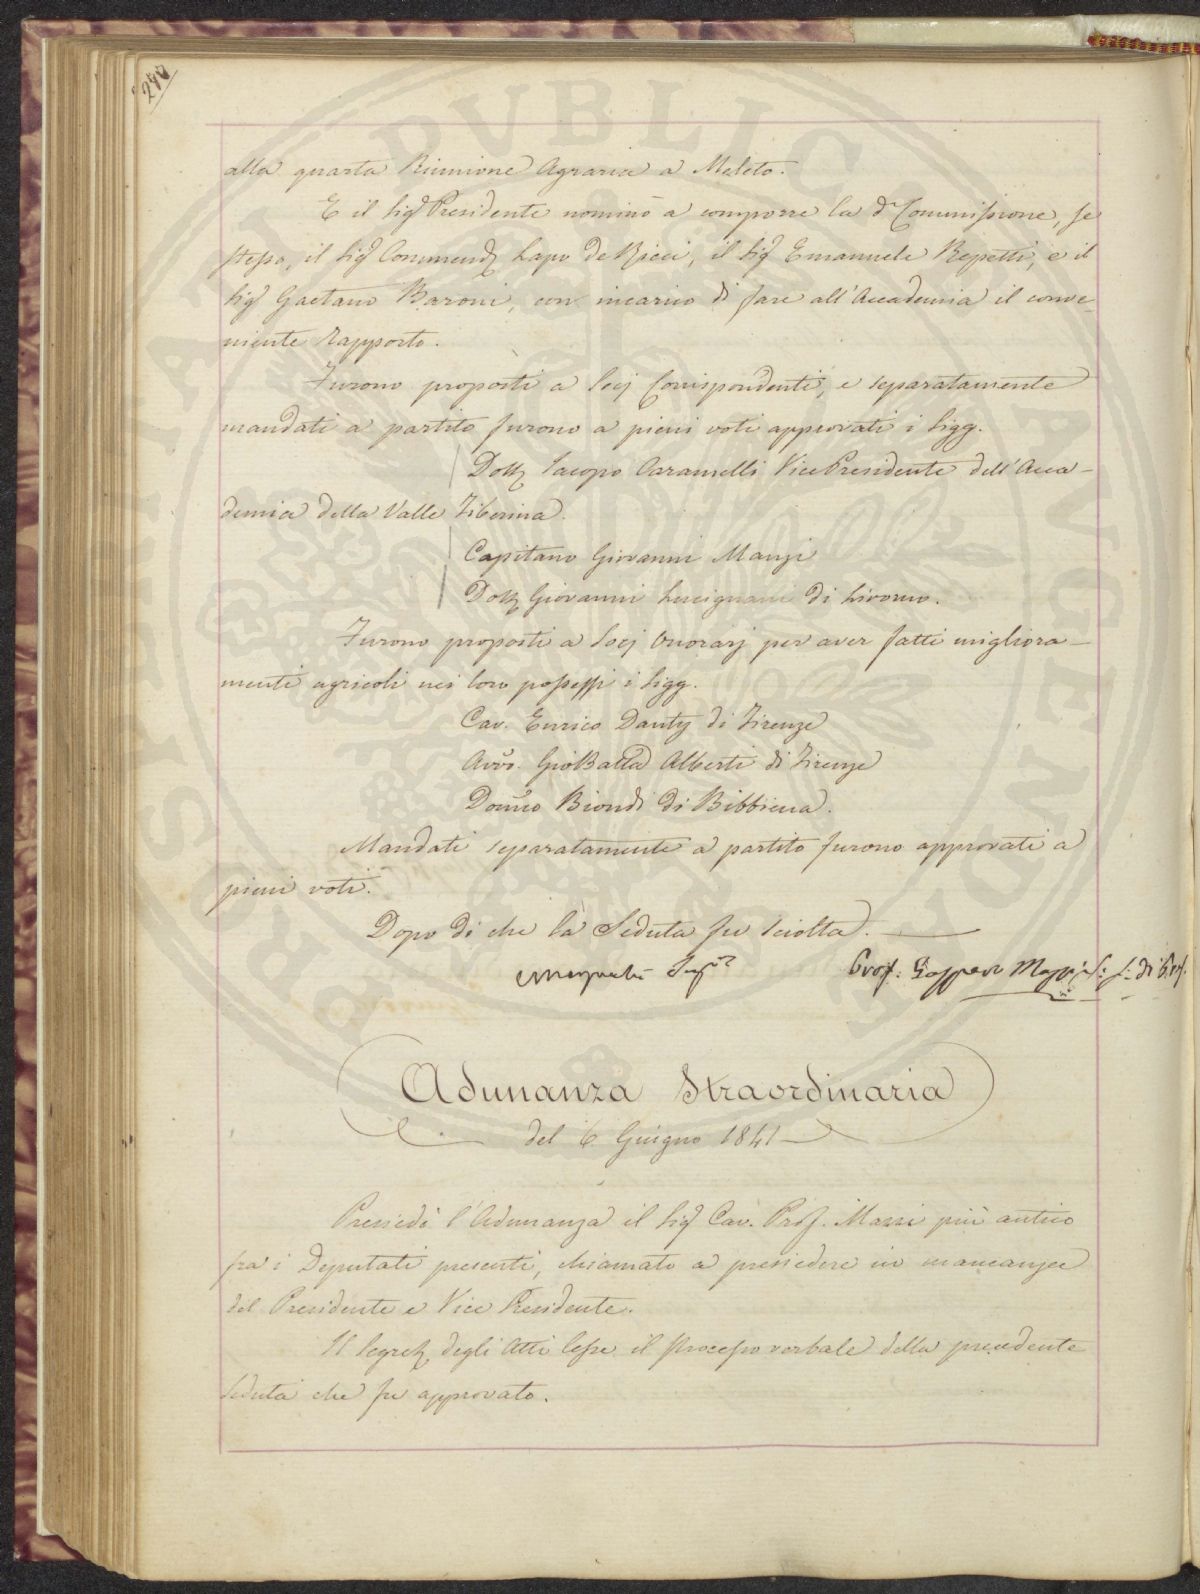 alla quarta Riunione Agraria a Meleto.
E il Sigr Presidente nominò a comporre la dª Commissione, se
stesso, il Sigr Commendr Lapo de Ricci, il Sigr Emanuele Repetti, e il
Sigr Gaetano Baroni, con incarico di fare all'Accademia il conve-
niente rapporto.
Furono proposti a Socj Corrispondenti, e separatamente
mandati a partito furono a pieni voti approvati i Sigg.
Dottr Jacopo Caramelli Vice Presidente dell'Acca-
demia della Valle Tiberina.
Capitano Giovanni Manzi
Dottr Giovanni Lucignani di Livorno.
Furono proposti a Socj Onorarj per aver fatti migliora-
menti agricoli nei loro possessi i Sigg.
Cav. Enrico Danty di Firenze
Avvo. Gio Batta Alberti di Firenze
Biondi di Bibbiena.
Mandati separatamente a partito furono approvati a
pieni voti.
Dopo di che la Seduta fu sciolta.
Prof. Gasspero Mazzi S. f. di Pres.
Adunanza Straordinaria
del 6 Giugno 1841
Presiedè l'Adunanza il Sigr Cav. Prof. Mazzi più antico
fra i Deputati presenti, chiamato a presiedere in mancanza
del Presidente e Vice Presidente.
Il Segretr degli Atti lesse il Processo verbale della precedente
Seduta che fu approvato.
PVBLICAE
FELICITATI
AVGENDAE
PROSPERITATI